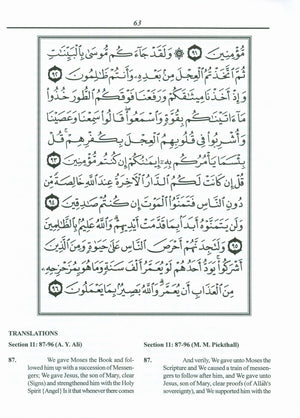 63
مُّؤْمِنِينَ ٩١ ۞ وَلَقَدْ جَاءَكُم مُّوسَىٰ بِالْبَيِّنَاتِ
ثُمَّ اتَّخَذْتُمُ الْعِجْلَ مِن بَعْدِهِ وَأَنتُمْ ظَالِمُونَ ٩٢
وَإِذْ أَخَذْنَا مِيثَاقَكُمْ وَرَفَعْنَا فَوْقَكُمُ الطُّورَ خُذُوا
مَا آتَيْنَاكُم بِقُوَّةٍ وَاسْمَعُوا ۖ قَالُوا سَمِعْنَا وَعَصَيْنَا
وَأُشْرِبُوا فِي قُلُوبِهِمُ الْعِجْلَ بِكُفْرِهِمْ ۚ قُلْ
بِئْسَمَا يَأْمُرُكُم بِهِ إِيمَانُكُمْ إِن كُنتُم مُّؤْمِنِينَ ٩٣
قُلْ إِن كَانَتْ لَكُمُ الدَّارُ الْآخِرَةُ عِندَ اللَّهِ خَالِصَةً مِّن
دُونِ النَّاسِ فَتَمَنَّوُا الْمَوْتَ إِن كُنتُمْ صَادِقِينَ ٩٤
وَلَن يَتَمَنَّوْهُ أَبَدًا بِمَا قَدَّمَتْ أَيْدِيهِمْ ۗ وَاللَّهُ عَلِيمٌ بِالظَّالِمِينَ
٩٥ وَلَتَجِدَنَّهُمْ أَحْرَصَ النَّاسِ عَلَىٰ حَيَاةٍ وَمِنَ الَّذِينَ
أَشْرَكُوا ۚ يَوَدُّ أَحَدُهُمْ لَوْ يُعَمَّرُ أَلْفَ سَنَةٍ وَمَا هُوَ بِمُزَحْزِحِهِ
مِنَ الْعَذَابِ أَن يُعَمَّرَ ۗ وَاللَّهُ بَصِيرٌ بِمَا يَعْمَلُونَ ٩٦
TRANSLATIONS
Section 11: 87-96 (A. Y. Ali)
87. We gave Moses the Book and fol-
lowed him up with a succession of Messen-
gers; We gave Jesus, the son of Mary, clear
(Signs) and strengthened him with the Holy
Spirit {Angel} Is it that whenever there comes
Section 11: 87-96 (M. M. Pickthall)
87. And verily, We gave unto Moses the
Scripture and We caused a train of messen-
gers to follow after him, and We gave unto
Jesus, son of Mary, clear proofs (of Allâh's
sovereignty), and We supported him with the